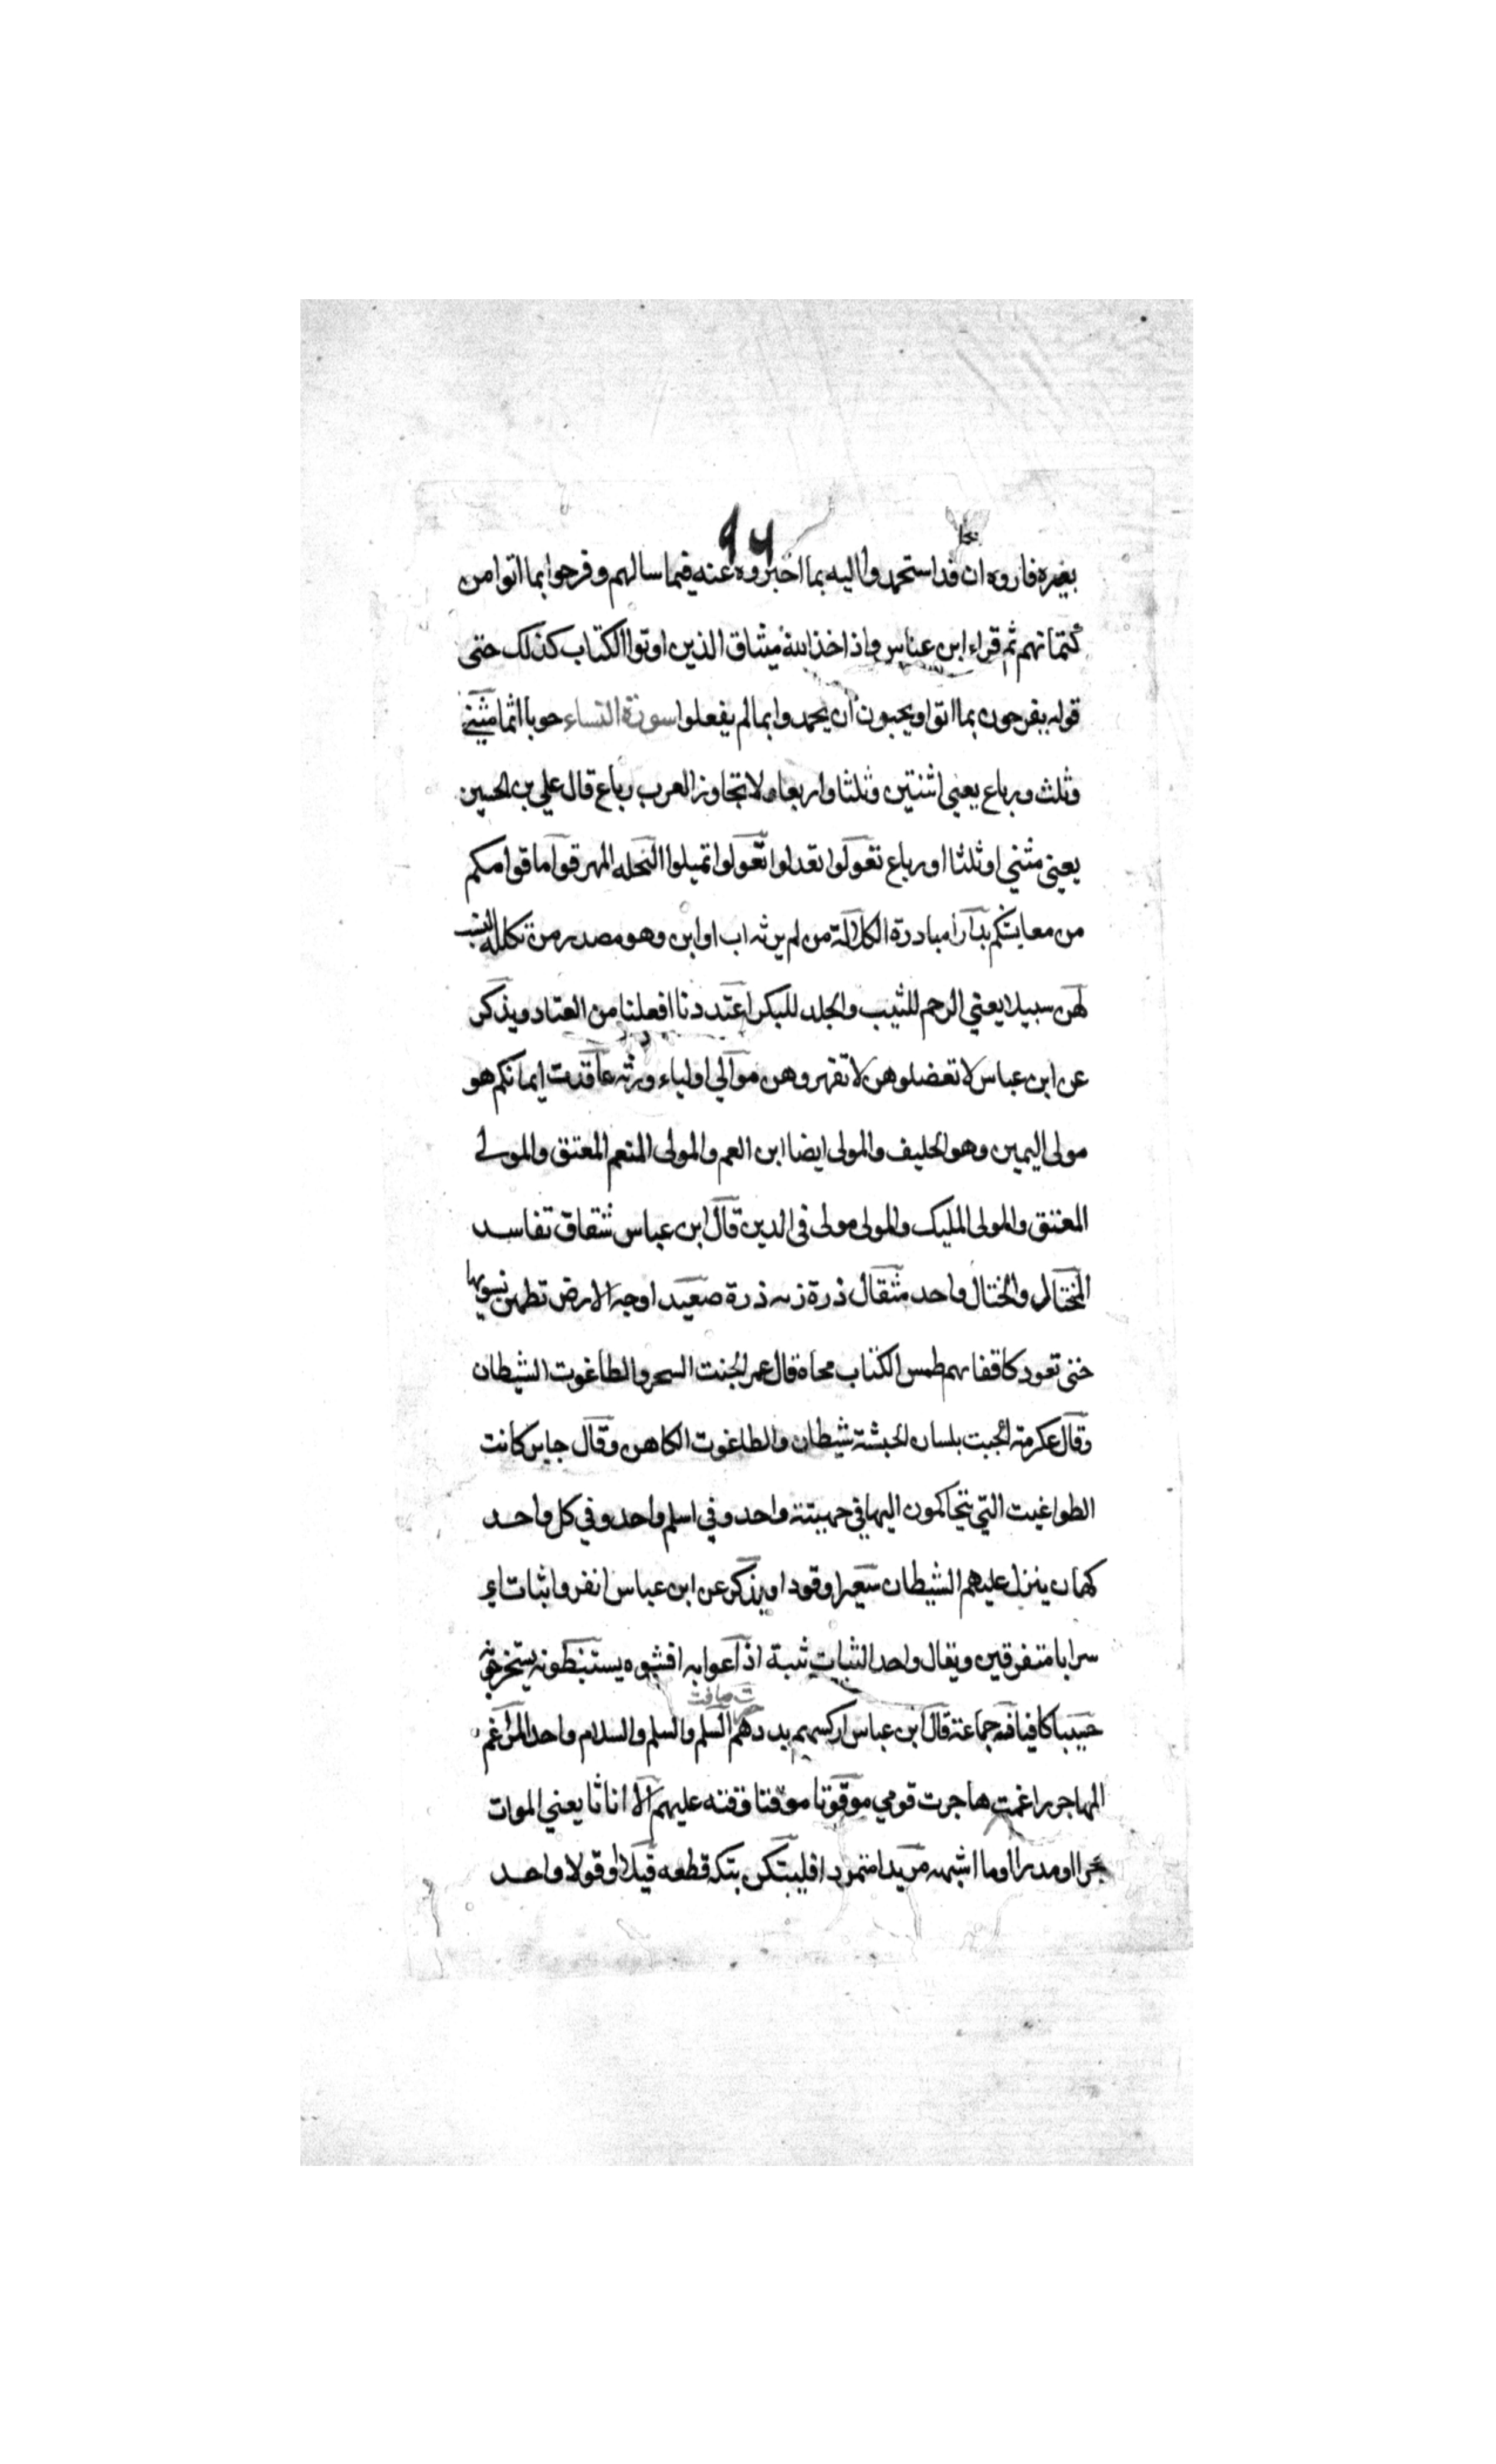 ٩٤
بغيره فاروه ان قد استحمدوا اليه بما اخبروه عنه فيما سالهم وفرحوا بما اتوا من
كتمانهم ثم قراء ابن عباس واذ اخذ الله ميثاق الذين اوتوا الكتاب كذلك حتى
قوله يفرحون بما اتوا ويحبون ان يحمدوا بما لم يفعلوا سورة النساء حوبا اثما مثنى
وثلث ورباع يعني اثنتين وثلثا واربعا ولا تجاوز العرب رباع قال علي بن الحسين
يعني مثني او ثلثا او رباع تعولوا تعدلوا تعولوا تميلوا النحله المهر قواما قوامكم
من معايشكم بدارا مبادرة الكلالة من لم يرثه اب او ابن وهو مصدر من تكلله النسب
لهن سبيلا يعني الرجم للثيب والجلد للبكر اعتدنا افعلنا من العتاد ويذكر
عن ابن عباس لا تعضلوهن لا تقهروهن موالي اولياء ورثه عاقدت ايمانكم هو
مولى اليمين وهو الحليف والمولى ايضا ابن العم والمولى المنعم المعتق والمولى
المعتق والمولى المليك والمولى مولى في الدين قال ابن عباس شقاق تفاسد
المختال والختال واحد مثقال ذرة زنه ذرة صعيدا وجه الارض تطمس نسويها
حتى تعود كاقفائهم طمس الكتاب محاه قال عمر الجبت السحر والطاغوت الشيطان
وقال عكرمة الجبت بلسان الحبشة شيطان والطاغوت الكاهن وقال جابر كانت
الطواغيت التي يتحاكمون اليها في جهينة واحد وفي اسلم واحد وفي كل واحد
كهان ينزل عليهم الشيطان سعيرا وقودا ويذكر عن ابن عباس انفروا ثبات اي
سرايا متفرقين ويقال واحد الثبات ثبة اذاعوا به افشوه يستنبطونه يستخرجونه
حسيبا كافيا فئه جماعة قال ابن عباس اركسهم بددهم السلم والسلم والسلام واحد المراغم
المهاجر راغمت هاجرت قومي موقوتا موقتا وقته عليهم الا اناثا يعني الموات
حجرا او مدرا وما اشبهه مريدا متمردا فليبتكن بتكه قطعه قيلا وقولا واحد